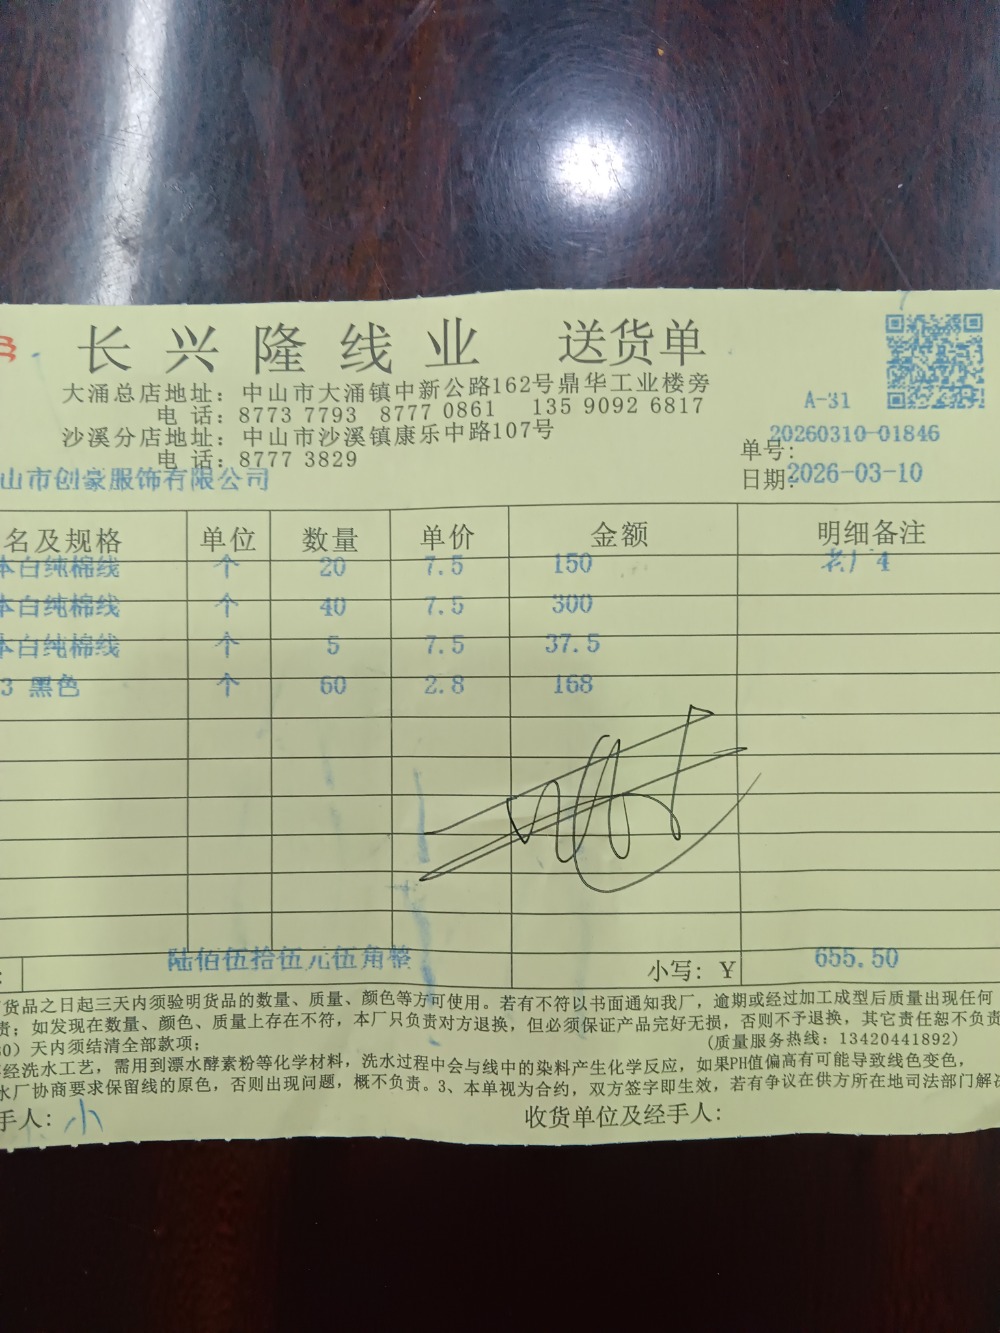 长兴隆线业 送货单
大涌总店地址：中山市大涌镇中新公路162号鼎华工业楼旁
电 话：8773 7793 8777 0861 135 9092 6817
A-31
沙溪分店地址：中山市沙溪镇康乐中路107号
单号：20260310-01846
电 话：8777 3829
日期：2026-03-10
山市创豪服饰有限公司
名及规格 单位 数量 单价 金额 明细备注
本白纯棉线 个 20 7.5 150 老厂4
本白纯棉线 个 40 7.5 300
本白纯棉线 个 5 7.5 37.5
3 黑色 个 60 2.8 168
陆佰伍拾伍元伍角整 小写：￥ 655.50
货品之日起三天内须验明货品的数量、质量、颜色等方可使用。若有不符以书面通知我厂，逾期或经过加工成型后质量出现任何
责；如发现在数量、颜色、质量上存在不符，本厂只负责对方退换，但必须保证产品完好无损，否则不予退换，其它责任恕不负责
0）天内须结清全部款项； (质量服务热线：13420441892)
经洗水工艺，需用到漂水酵素粉等化学材料，洗水过程中会与线中的染料产生化学反应，如果PH值偏高有可能导致线色变色，
水厂协商要求保留线的原色，否则出现问题，概不负责。3、本单视为合约，双方签字即生效，若有争议在供方所在地司法部门解决
手人：小 收货单位及经手人：